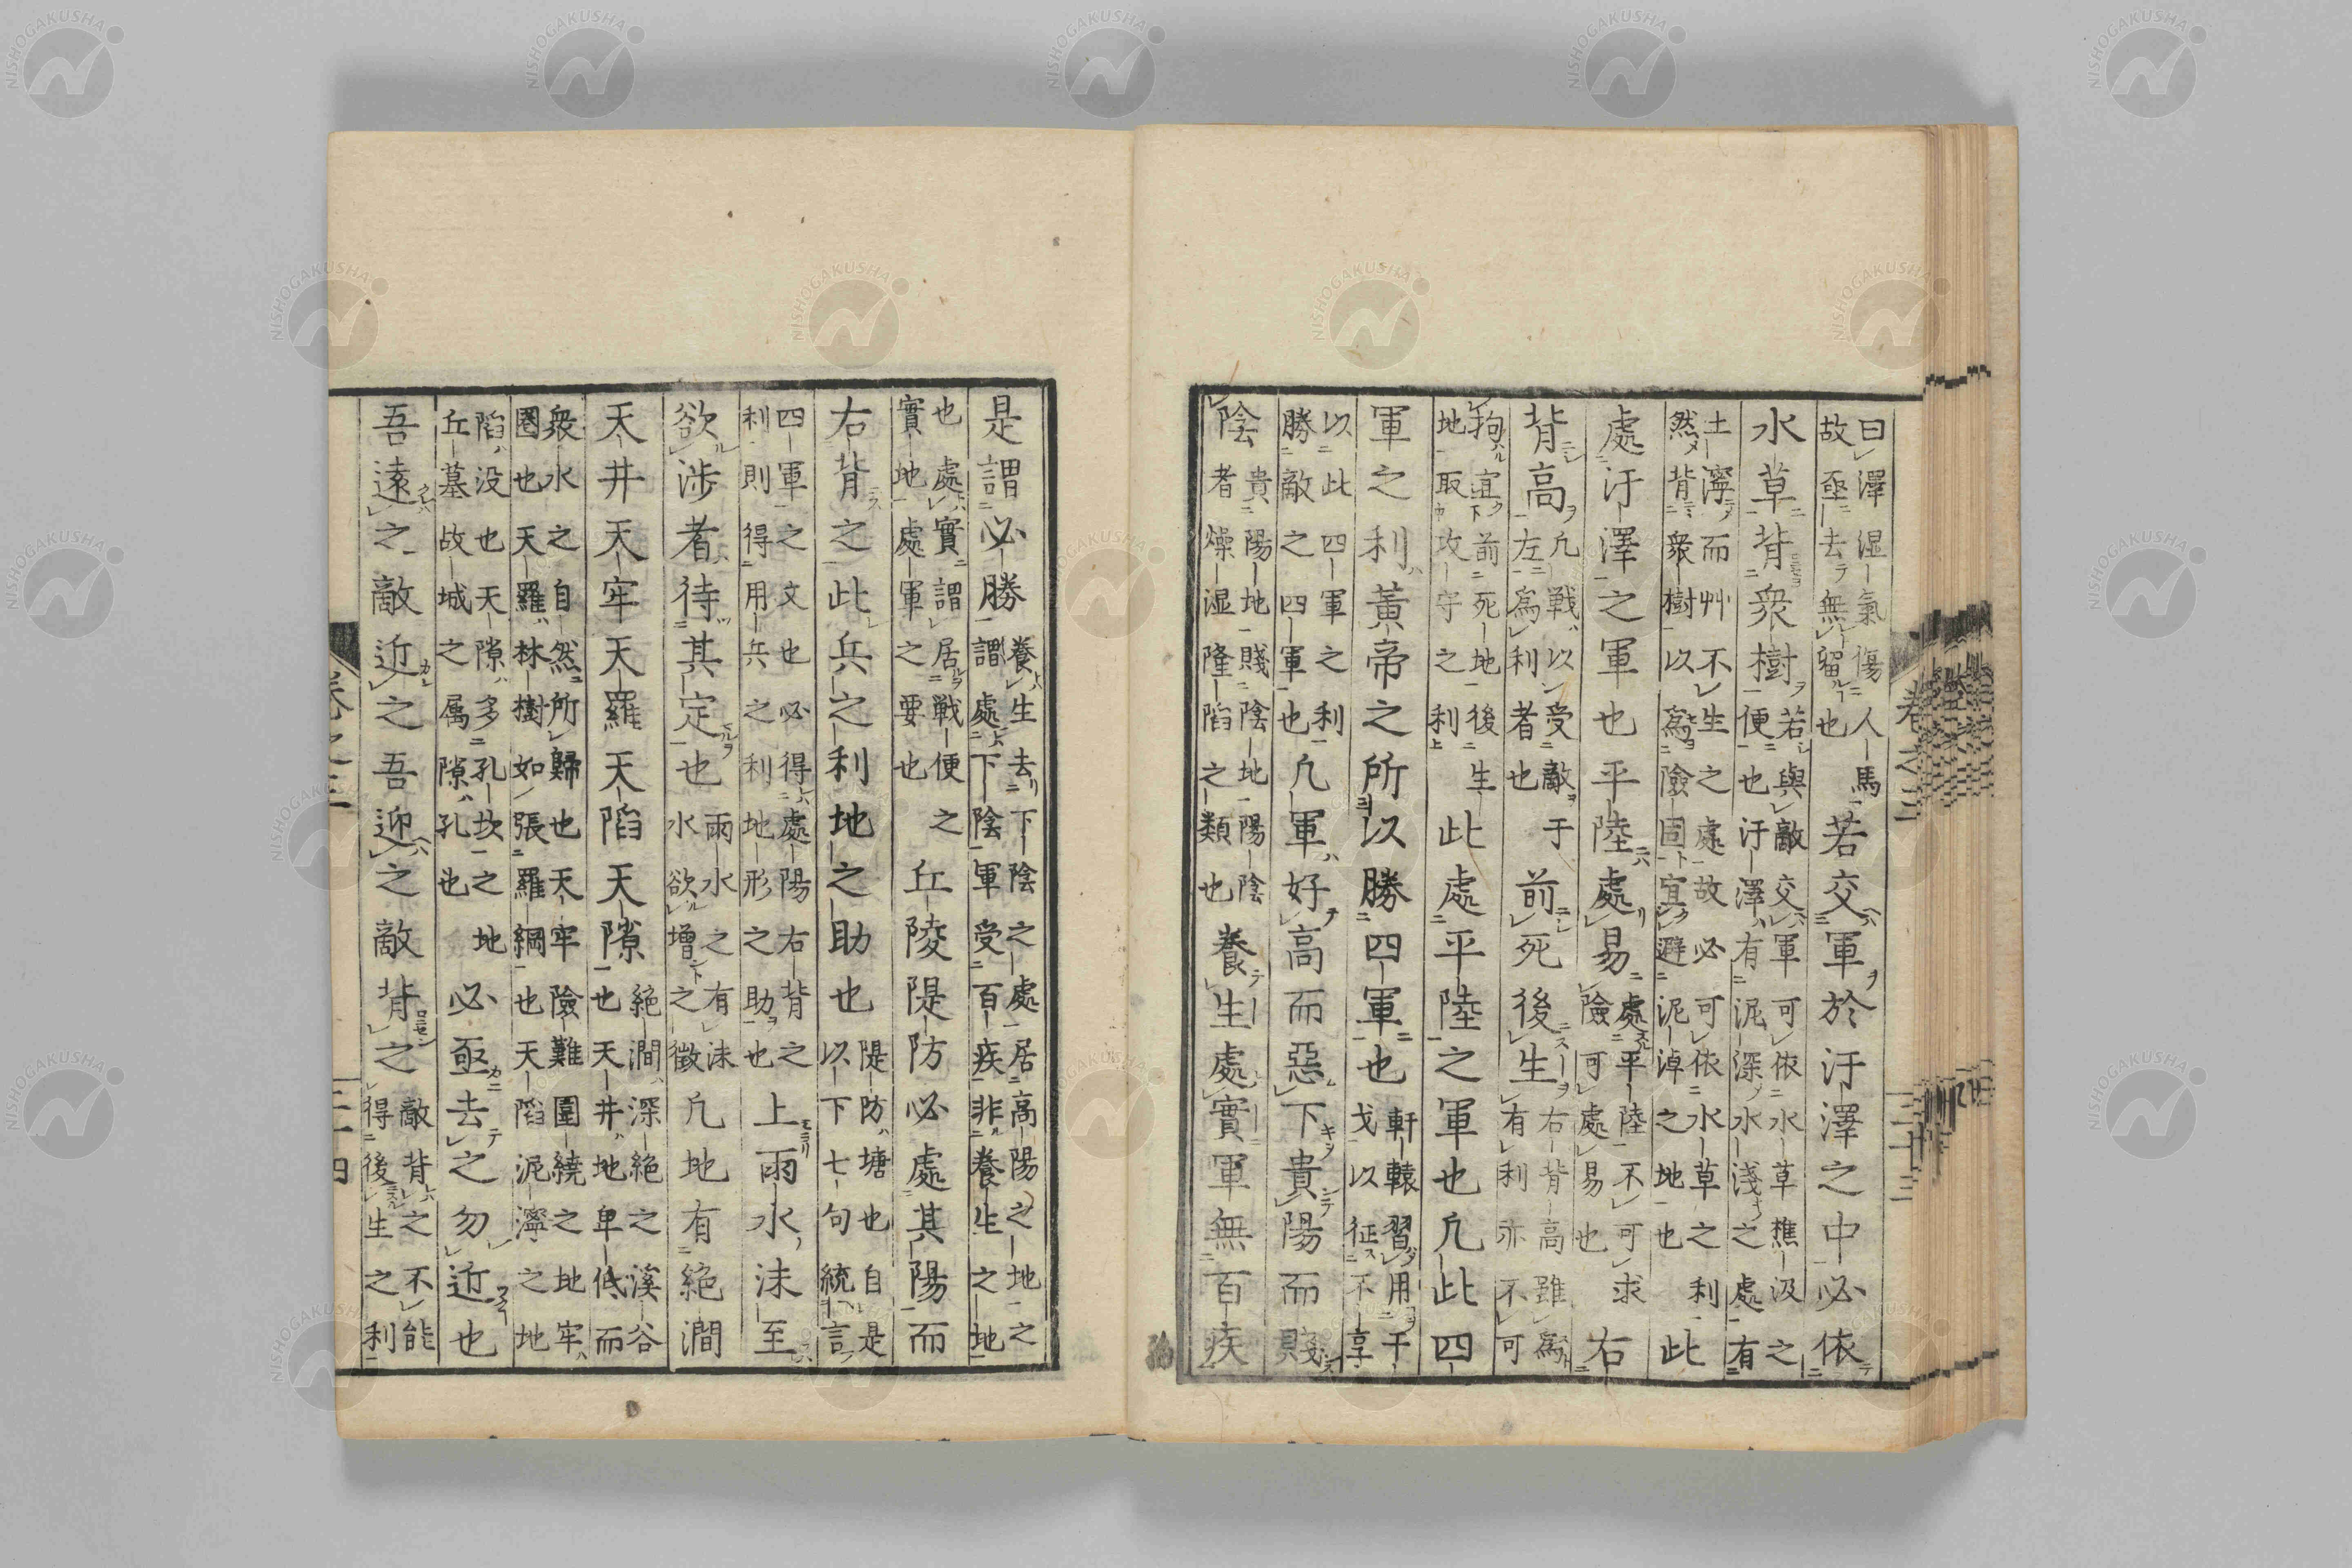 卷之三 三十三
曰澤湿氣傷人馬
故亟去無留也
若交軍於汙澤之中必依
水草背衆樹
若與敵交軍可依水草樵汲之
便也汙澤有泥深水淺之處有
土濘而艸不生之處故必可依水草之利
然背衆樹以為險固宜避泥淖之地也
此
處汙澤之軍也平陸處易
處平陸不可求
險可處易也
右
背高
凢戦以受敵于
左為利者也
前死後生
右背高雖為
有利亦不可
拘宜前死地後生
地取攻守之利
此處平陸之軍也凢此四
軍之利黃帝之所以勝四軍也
軒轅習用干
戈以征不享
以此四軍之利
勝敵之四軍也
凢軍好高而惡下貴陽而賤
陰
貴陽地賤陰地陽陰
者燥湿隆陷之類也
養生處實軍無百疾
是謂必勝
養生去下陰之處居高陽之地之
謂處下陰軍受百疾非養生之地
也處實謂居戦便之
實地處軍之要也
丘陵隄防必處其陽而
右背之此兵之利地之助也
隄防塘也自是
以下七句統言
四軍之文也必得處陽右背之
利則得用兵之利地形之助也
上雨水沫至
欲涉者待其定也
雨水之有沫
水欲增之徵
凢地有絕澗
天井天牢天羅天陷天隙
絕澗深絕之溪谷
也天井地卑低而
衆水之自然所歸也天牢險難圍繞之地牢
圏也天羅林樹如張羅網也天陷泥濘之地
陷没也天隙多孔坎之地
丘墓故城之属隙孔也
必亟去之勿近也
吾遠之敵近之吾迎之敵背之
敵背之不能
得後生之利
卷之三 三十四
NISHOGAKUSHA